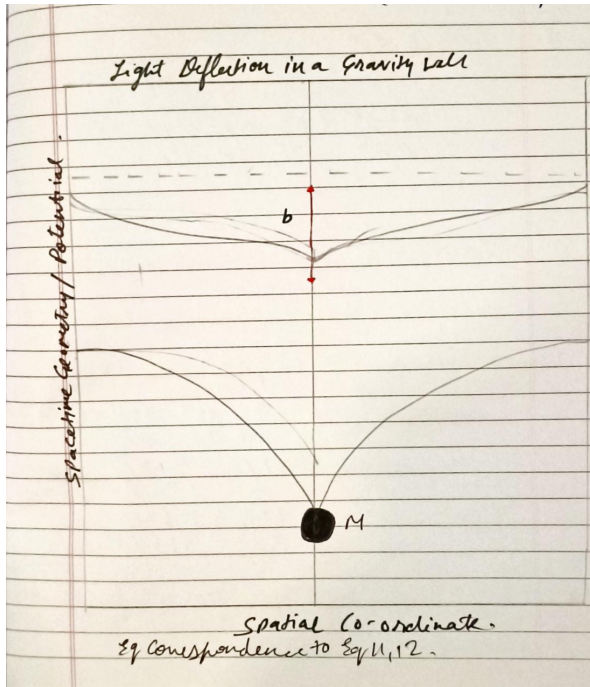 Light Deflection in a Gravity Well
Spacetime Geometry/Potential.
b
M
Spatial Co-ordinate.
Eq Correspondence to Eq 11, 12.